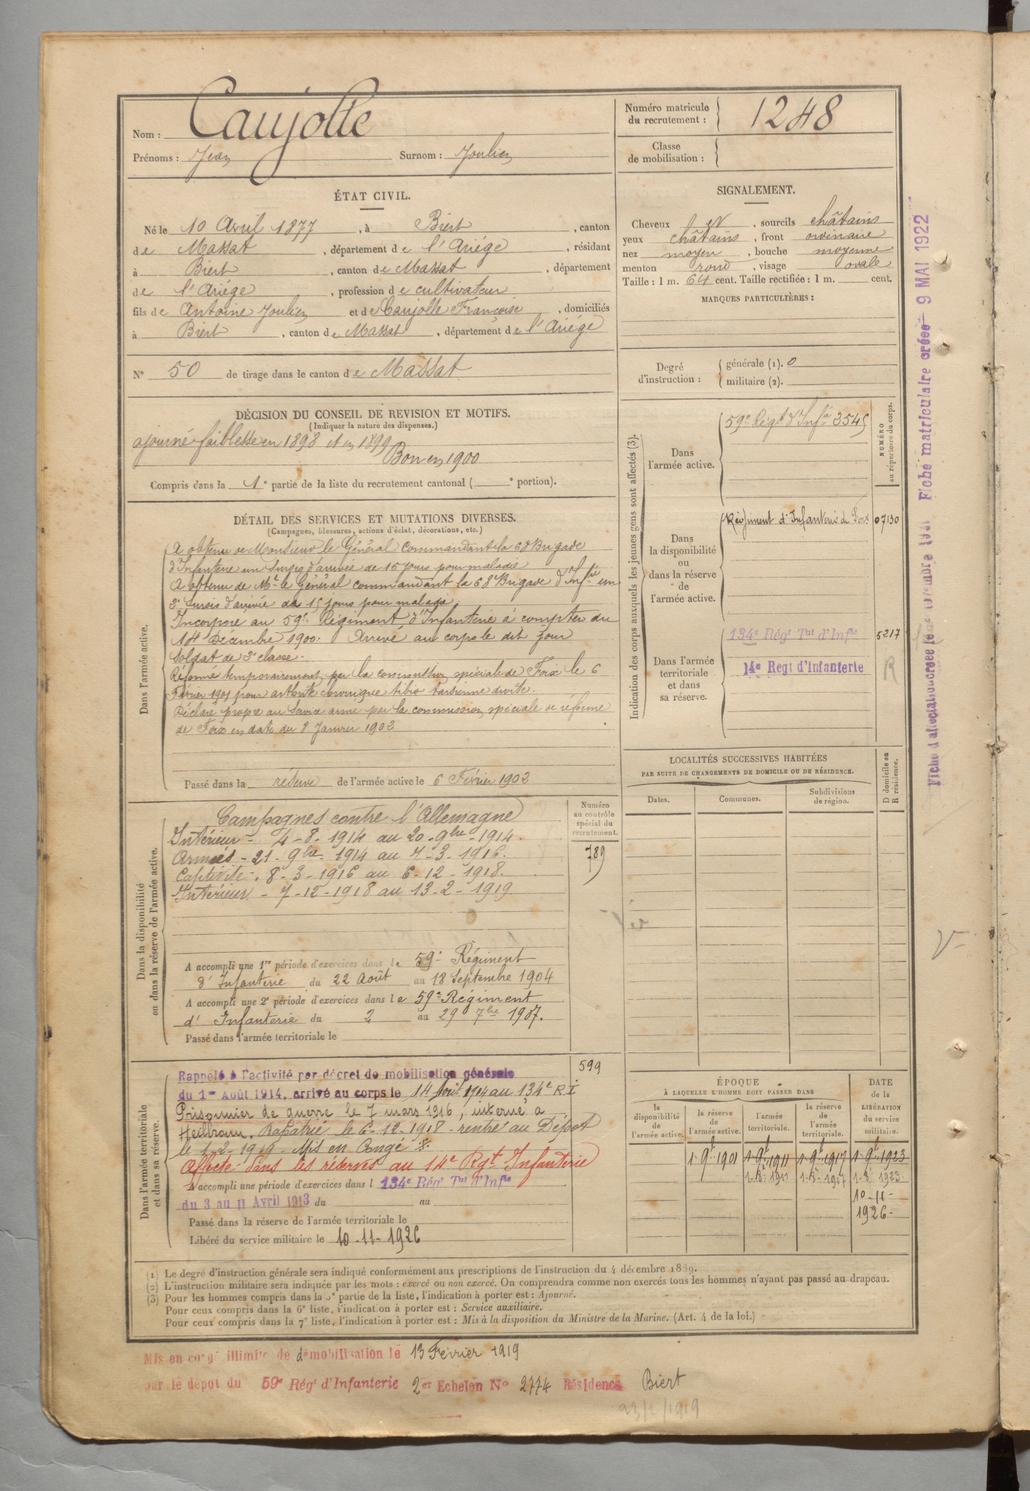 Nom : Caujolle
Prénoms : Jean Surnom : Joulien
Numéro matricule du recrutement : 1248
Classe de mobilisation :
ÉTAT CIVIL.
Né le 10 Avril 1877, à Biert, canton
de Massat, département de l'Ariège, résidant
à Biert, canton de Massat, département
de l'Ariège, profession de cultivateur
fils de Antoine Joulien et de Caujolle Françoise, domiciliés
à Biert, canton de Massat, département de l'Ariège
N° 50 de tirage dans le canton de Massat
SIGNALEMENT.
Cheveux, sourcils châtains
yeux châtains, front ordinaire
nez moyen, bouche moyenne
menton rond, visage ovale
Taille : 1 m. 64 cent. Taille rectifiée : 1 m. cent.
MARQUES PARTICULIÈRES :
Degré d'instruction : générale (1). 0
militaire (2).
DÉCISION DU CONSEIL DE REVISION ET MOTIFS.
(Indiquer la nature des dispenses.)
ajourné faiblesse en 1898 et en 1899
Bon en 1900
Compris dans la 1e partie de la liste du recrutement cantonal ( e portion).
DÉTAIL DES SERVICES ET MUTATIONS DIVERSES.
(Campagnes, blessures, actions d'éclat, décorations, etc.)
Dans l'armée active.
A obtenu de Monsieur le Général Commandant la 68 Brigade
d'Infanterie un sursis d'arrivée de 15 jours pour malade
A obtenu de Mr le Général commandant la 68e Brigade d'Infie un
2e sursis d'arrivée de 15 jours pour malade.
Incorporé au 59e Régiment d'Infanterie à compter du
Décembre 1900. Arrivé au corps le dit jour
Soldat de 2e classe.
Réformé temporairement par la commission spéciale de Foix le 6
Février 1901 pour arthrite chronique tibio tarsienne droite.
Déclaré propre au service armé par la commission spéciale de réforme
de Foix en date du 8 Janvier 1902
Passé dans la réserve de l'armée active le 6 Février 1902
Indication des corps auxquels les jeunes gens sont affectés (3).
NUMÉRO au répertoire du corps.
Dans l'armée active.
59e Régt d'Infie 3545
Dans la disponibilité ou dans la réserve de l'armée active.
Régiment d'Infanterie de Foix 07130
Dans l'armée territoriale et dans sa réserve.
134e Régt Tal d'Infie 5217
14e Regt d'Infanterie R
LOCALITÉS SUCCESSIVES HABITÉES
PAR SUITE DE CHANGEMENTS DE DOMICILE OU DE RÉSIDENCE.
D domicile ou R résidence.
Dates. Communes. Subdivisions de région.
Dans la disponibilité ou dans la réserve de l'armée active.
Numéro au contrôle spécial du recrutement.
789
Campagnes contre l'Allemagne
Intérieur - 4-8-1914 au 20-9bre 1914.
Armées - 21-9bre 1914 au 7-3-1916.
Captivité - 8-3-1916 au 6-12-1918.
Intérieur - 7-12-1918 au 13-2-1919
A accompli une 1re période d'exercices dans le 59e Régiment
d'Infanterie du 22 Août au 18 Septembre 1904
A accompli une 2e période d'exercices dans le 59e Régiment
d'Infanterie du 2 au 29 7bre 1907.
Passé dans l'armée territoriale le
Dans l'armée territoriale et dans sa réserve.
599
Rappelé à l'activité par décret de mobilisation générale
du 1er Août 1914, arrivé au corps le 14 Août 1914 au 134e R.I
Prisonnier de guerre le 7 mars 1916, interné à
Heilbronn. Rapatrié le 6-12-1918 - rentré au Dépôt
Mis en Congé
Affecté dans les réserves au 14e Rgt Infanterie
A accompli une période d'exercices dans l 134e Régt Tal d'Infie
du 3 au 11 Avril 1913 du au
Passé dans la réserve de l'armée territoriale le
Libéré du service militaire le 10-11-1926
ÉPOQUE
À LAQUELLE L'HOMME DOIT PASSER DANS
DATE de la LIBÉRATION du service militaire.
la disponibilité de l'armée active. la réserve de l'armée active. l'armée territoriale. la réserve de l'armée territoriale.
1-9t 1901 1-9t 1911 1-9t 1917 1-9t 1923
10-11-
1926-
(1) Le degré d'instruction générale sera indiqué conformément aux prescriptions de l'instruction du 4 décembre 1889.
(2) L'instruction militaire sera indiquée par les mots : exercé ou non exercé. On comprendra comme non exercés tous les hommes n'ayant pas passé au drapeau.
(3) Pour les hommes compris dans la 5e partie de la liste, l'indication à porter est : Ajourné.
Pour ceux compris dans la 6e liste, l'indication à porter est : Service auxiliaire.
Pour ceux compris dans la 7e liste, l'indication à porter est : Mis à la disposition du Ministre de la Marine. (Art. 4 de la loi.)
Mis en congé illimité de démobilisation le 13 Février 1919
par le dépôt du 59e Régt d'Infanterie 2er Echelon No 2774 Résidence Biert
Fiche matriculaire créée - 9 MAI 1922